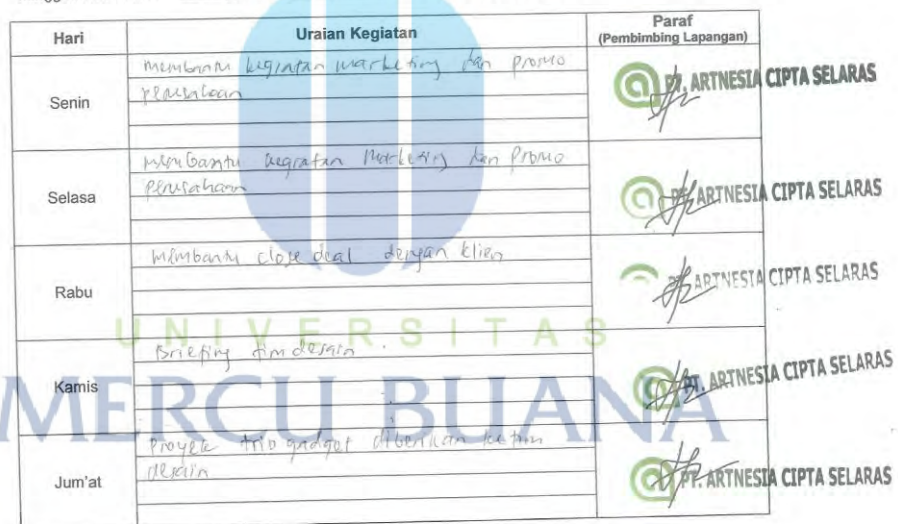 Hari
Uraian Kegiatan
Paraf
(Pembimbing Lapangan)
Senin
membantu kegiatan marketing dan promo
perusahaan
PT. ARTNESIA CIPTA SELARAS
Selasa
membantu kegiatan Marketing dan Promo
perusahaan
PT. ARTNESIA CIPTA SELARAS
Rabu
Membantu close deal dengan klien
PT. ARTNESIA CIPTA SELARAS
Kamis
Briefing tim desain
PT. ARTNESIA CIPTA SELARAS
Jum'at
Proyek trio gadget diberikan ke tim
desain
PT. ARTNESIA CIPTA SELARAS
UNIVERSITAS
MERCU BUANA